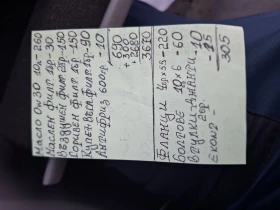 Масло 0w30 10л-260
Маслен филт. 1бр-30
Въздушен филт 2бр-150
Горивен филт. 1бр-150
Купе+Въсл.филт.1бр-90
Антифриз 600гр-10
690
+300
2680
3670
Фланци 4бр x 55-220
Болтове 10x6-60
Втулки-джанти-10
2бр
Еконт - 15
305